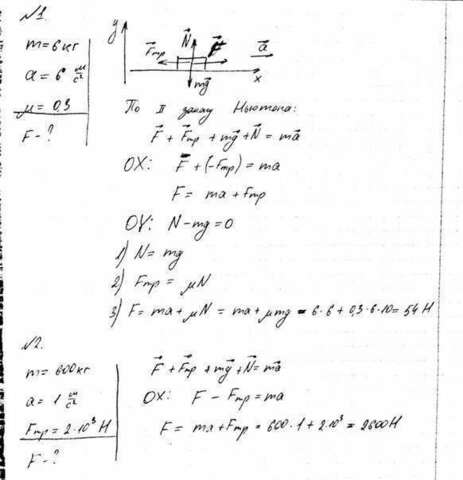 №1
m = 6 кг
a = 6 м/с²
μ = 0,3
F - ?
y
F⃗тр
N⃗
F⃗
a⃗
mg⃗
x
По II закону Ньютона:
F⃗ + F⃗тр + mg⃗ + N⃗ = ma⃗
OX: F + (-Fтр) = ma
F = ma + Fтр
OY: N - mg = 0
1) N = mg
2) Fтр = μN
3) F = ma + μN = ma + μmg = 6·6 + 0,3·6·10 = 54 Н
№2.
m = 600 кг
a = 1 м/с²
Fтр = 2·10³ Н
F - ?
F⃗ + F⃗тр + mg⃗ + N⃗ = ma⃗
OX: F - Fтр = ma
F = ma + Fтр = 600·1 + 2·10³ = 2600 Н